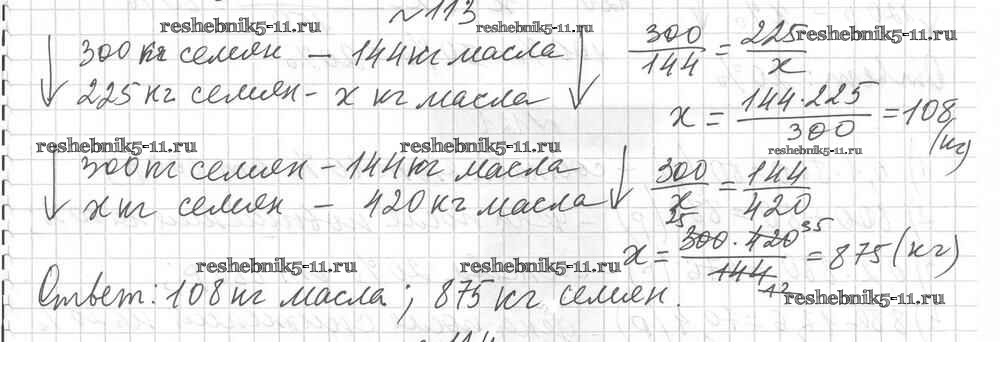 №113
reshebnik5-11.ru reshebnik5-11.ru reshebnik5-11.ru
300 кг семян – 144 кг масла 300/144 = 225/x
225 кг семян – x кг масла
x = 144·225/300 = 108 (кг)
reshebnik5-11.ru reshebnik5-11.ru reshebnik5-11.ru
300 кг семян – 144 кг масла 300/x = 144/420
x кг семян – 420 кг масла
x = 300·420/144 = 875 (кг)
25 35 12
reshebnik5-11.ru reshebnik5-11.ru reshebnik5-11.ru
Ответ: 108 кг масла; 875 кг семян.